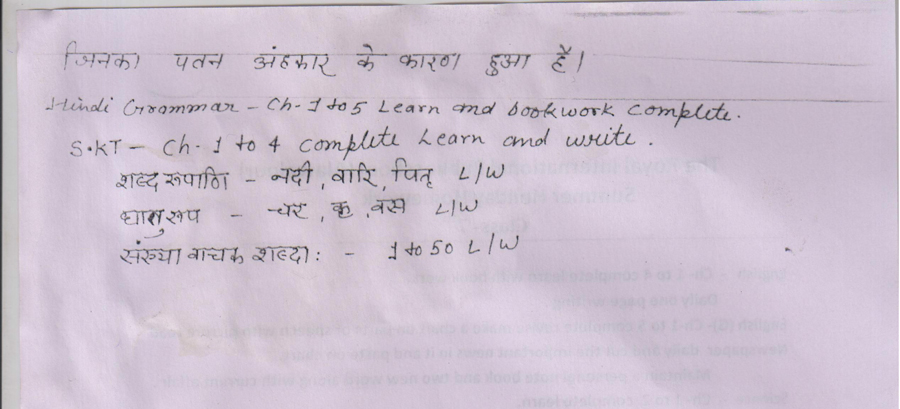 जिनका पतन अंहकार के कारण हुआ है।
Hindi Grammar - Ch- 1 to 5 Learn and bookwork complete.
S.KT - Ch. 1 to 4 complete Learn and write.
शब्द रूपाणि - नदी, वारि, पितृ L/W
धातुरूप - चर, कृ, वस L/W
संख्या वाचक शब्दा: - 1 to 50 L/W